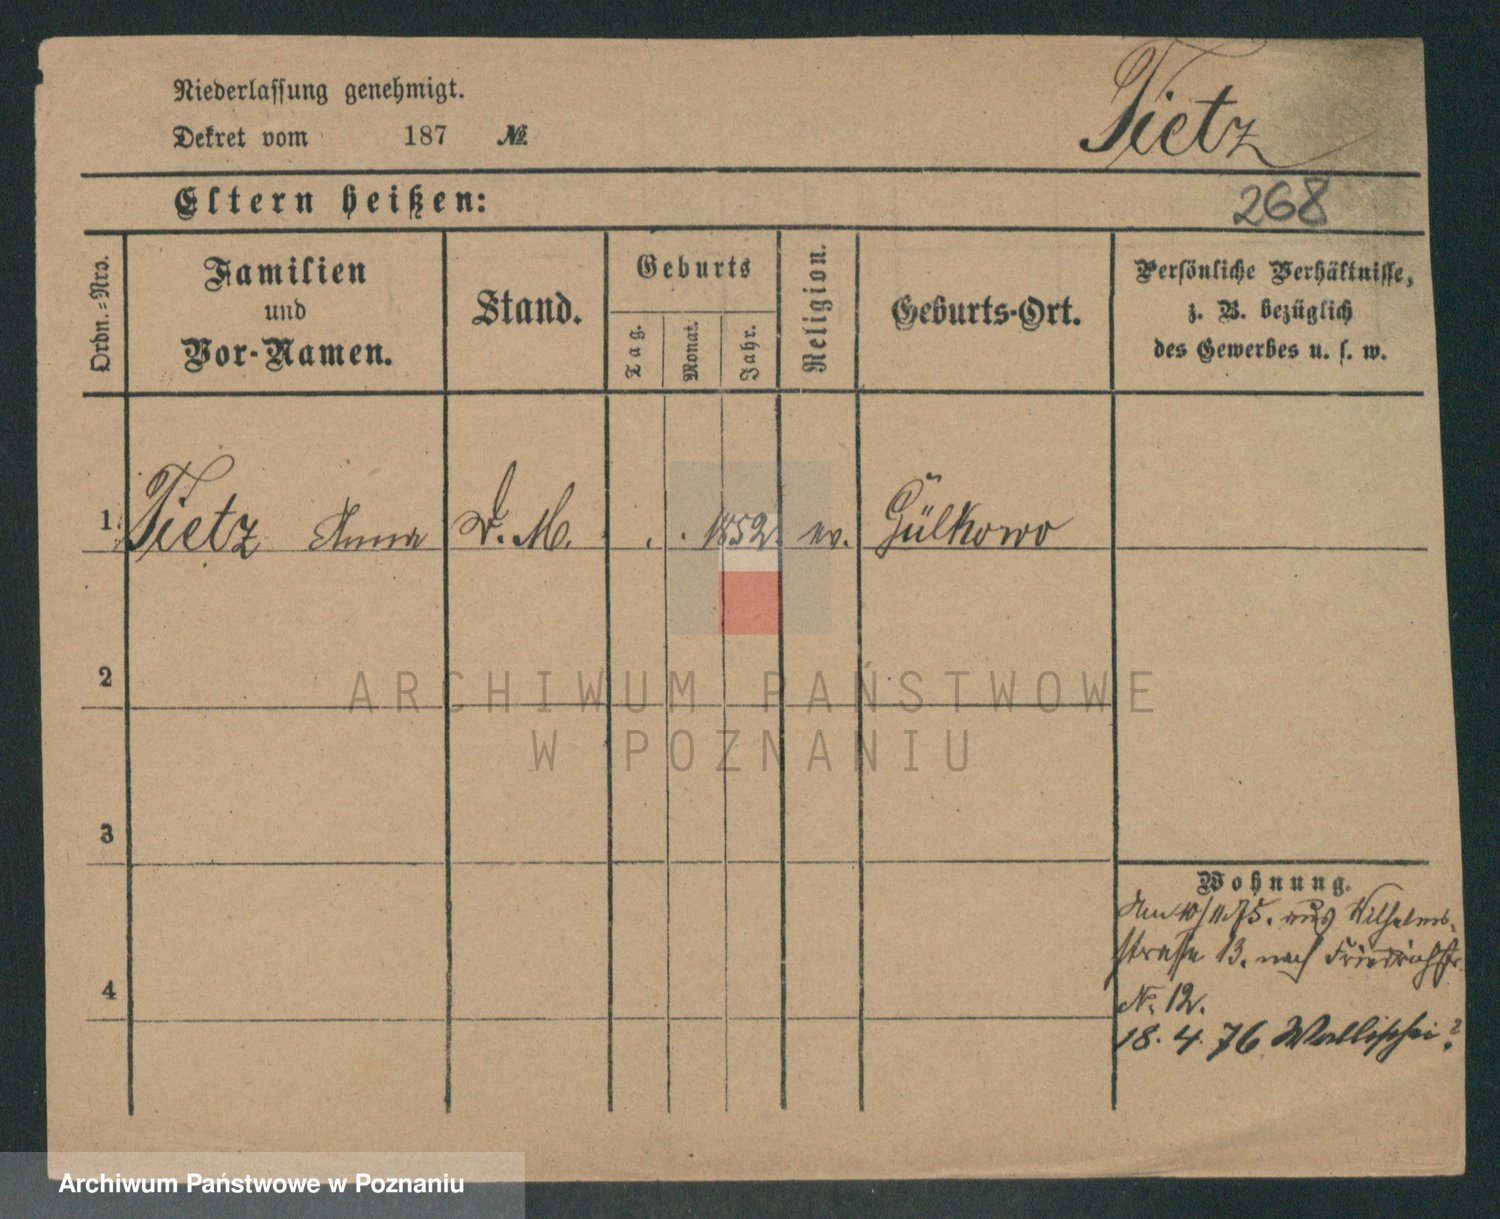 Niederlassung genehmigt.
Dekret vom 187 №
Tietz
Eltern heißen:
268
Ordn.-Nro.
Familien
und
Vor-Namen.
Stand.
Geburts
Tag.
Monat.
Jahr.
Religion.
Geburts-Ort.
Persönliche Verhältnisse,
z. B. bezüglich
des Gewerbes u. s. w.
1. Tietz Anna D. M. . . 1852. ev. Gülkowo
2
ARCHIWUM PAŃSTWOWE
W POZNANIU
3
Wohnung.
Am 10/11.75. aus Wilhelms-
strasse 13. nach Friedrichstr.
4
No. 12.
18. 4. 76 Wallischei ?
Archiwum Państwowe w Poznaniu